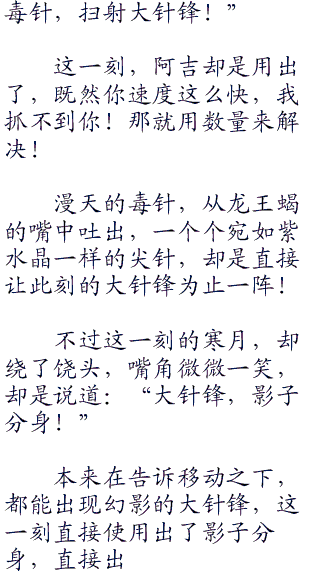 毒针，扫射大针锋！”
这一刻，阿吉却是用出
了，既然你速度这么快，我
抓不到你！那就用数量来解
决！
漫天的毒针，从龙王蝎
的嘴中吐出，一个个宛如紫
水晶一样的尖针，却是直接
让此刻的大针锋为止一阵！
不过这一刻的寒月，却
绕了饶头，嘴角微微一笑，
却是说道：“大针锋，影子
分身！”
本来在告诉移动之下，
都能出现幻影的大针锋，这
一刻直接使用出了影子分
身，直接出